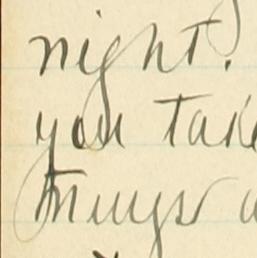 night.
you take
things